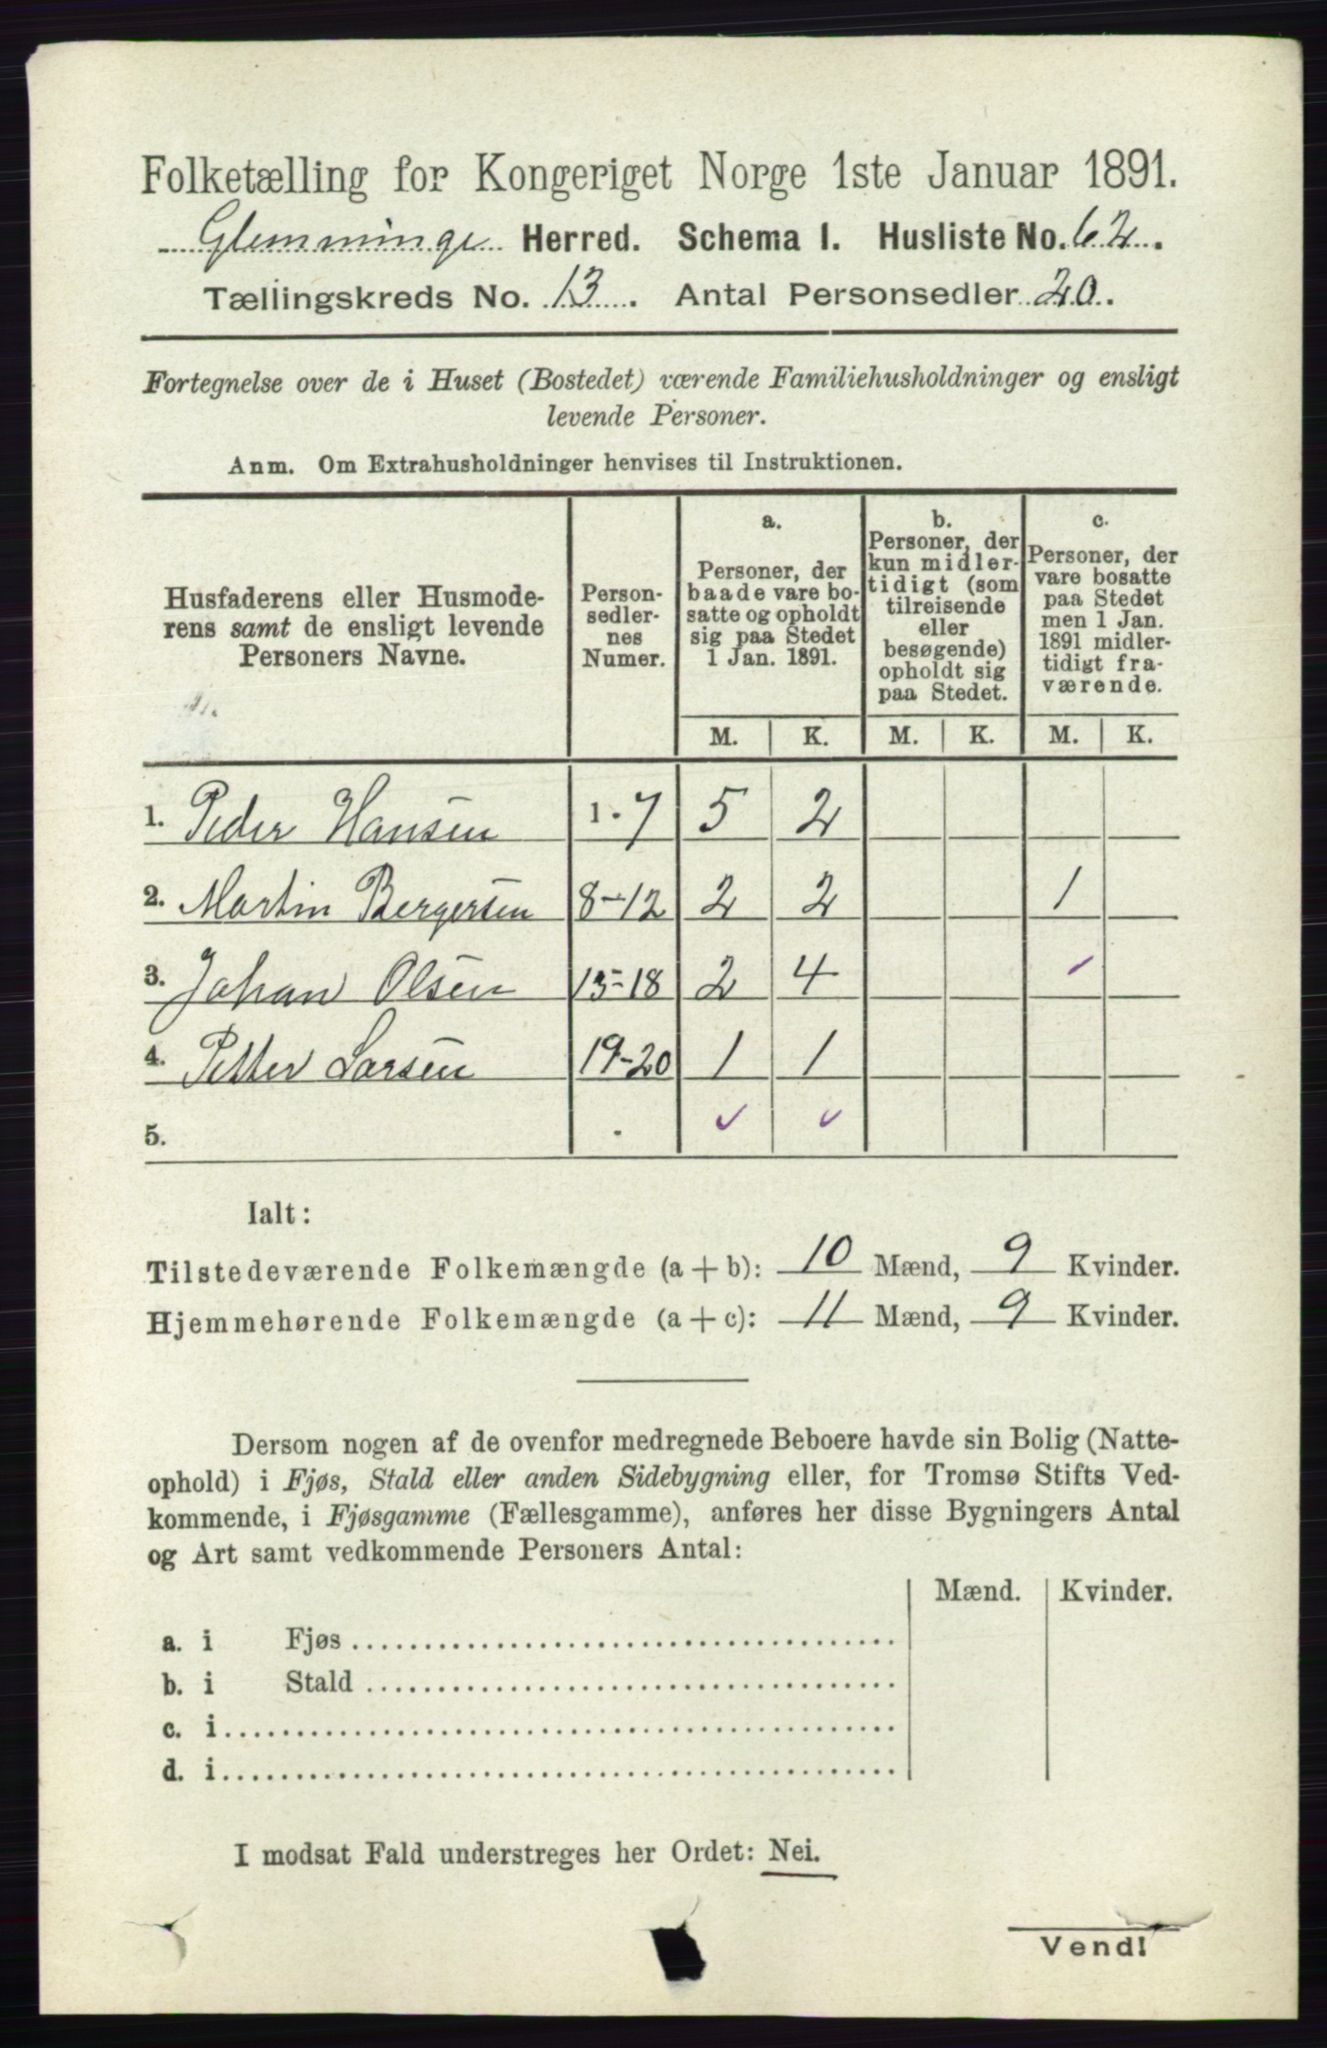 Folketælling for Kongeriget Norge 1ste Januar 1891.
Glemminge Herred. Schema I. Husliste No. 62.
Tællingskreds No. 13. Antal Personsedler 20.
Fortegnelse over de i Huset (Bostedet) værende Familiehusholdninger og ensligt
levende Personer.
Anm. Om Extrahusholdninger henvises til Instruktionen.
Husfaderens eller Husmode-
rens samt de ensligt levende
Personers Navne.
Person-
sedler-
nes
Numer.
a.
Personer, der
baade vare bo-
satte og opholdt
sig paa Stedet
1 Jan. 1891.
b.
Personer, der
kun midler-
tidigt (som
tilreisende
eller
besøgende)
opholdt sig
paa Stedet.
c.
Personer, der
vare bosatte
paa Stedet
men 1 Jan.
1891 midler-
tidigt fra-
værende.
M. K. M. K. M. K.
1. Peder Hansen 1-7 5 2
2. Martin Bergersen 8-12 2 2 1
3. Johan Olsen 13-18 2 4
4. Petter Larsen 19-20 1 1
5.
Ialt:
Tilstedeværende Folkemængde (a + b): 10 Mænd, 9 Kvinder.
Hjemmehørende Folkemængde (a + c): 11 Mænd, 9 Kvinder.
Dersom nogen af de ovenfor medregnede Beboere havde sin Bolig (Natte-
ophold) i Fjøs, Stald eller anden Sidebygning eller, for Tromsø Stifts Ved-
kommende, i Fjøsgamme (Fællesgamme), anføres her disse Bygningers Antal
og Art samt vedkommende Personers Antal:
Mænd. Kvinder.
a. i Fjøs
b. i Stald
c. i
d. i
I modsat Fald understreges her Ordet: Nei.
Vend!